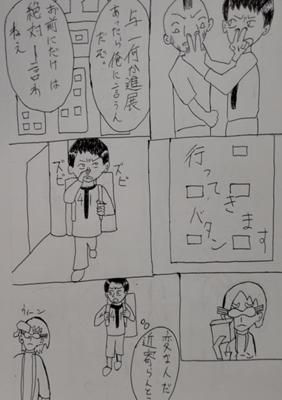 与一何か進展
あったら俺に言うん
だぞ。
お前にだけは
絶対ー言わ
ねえ
行って
きます
バタン
ズビ
ズビ
変な人だ
近寄らんとこ
ウィーン